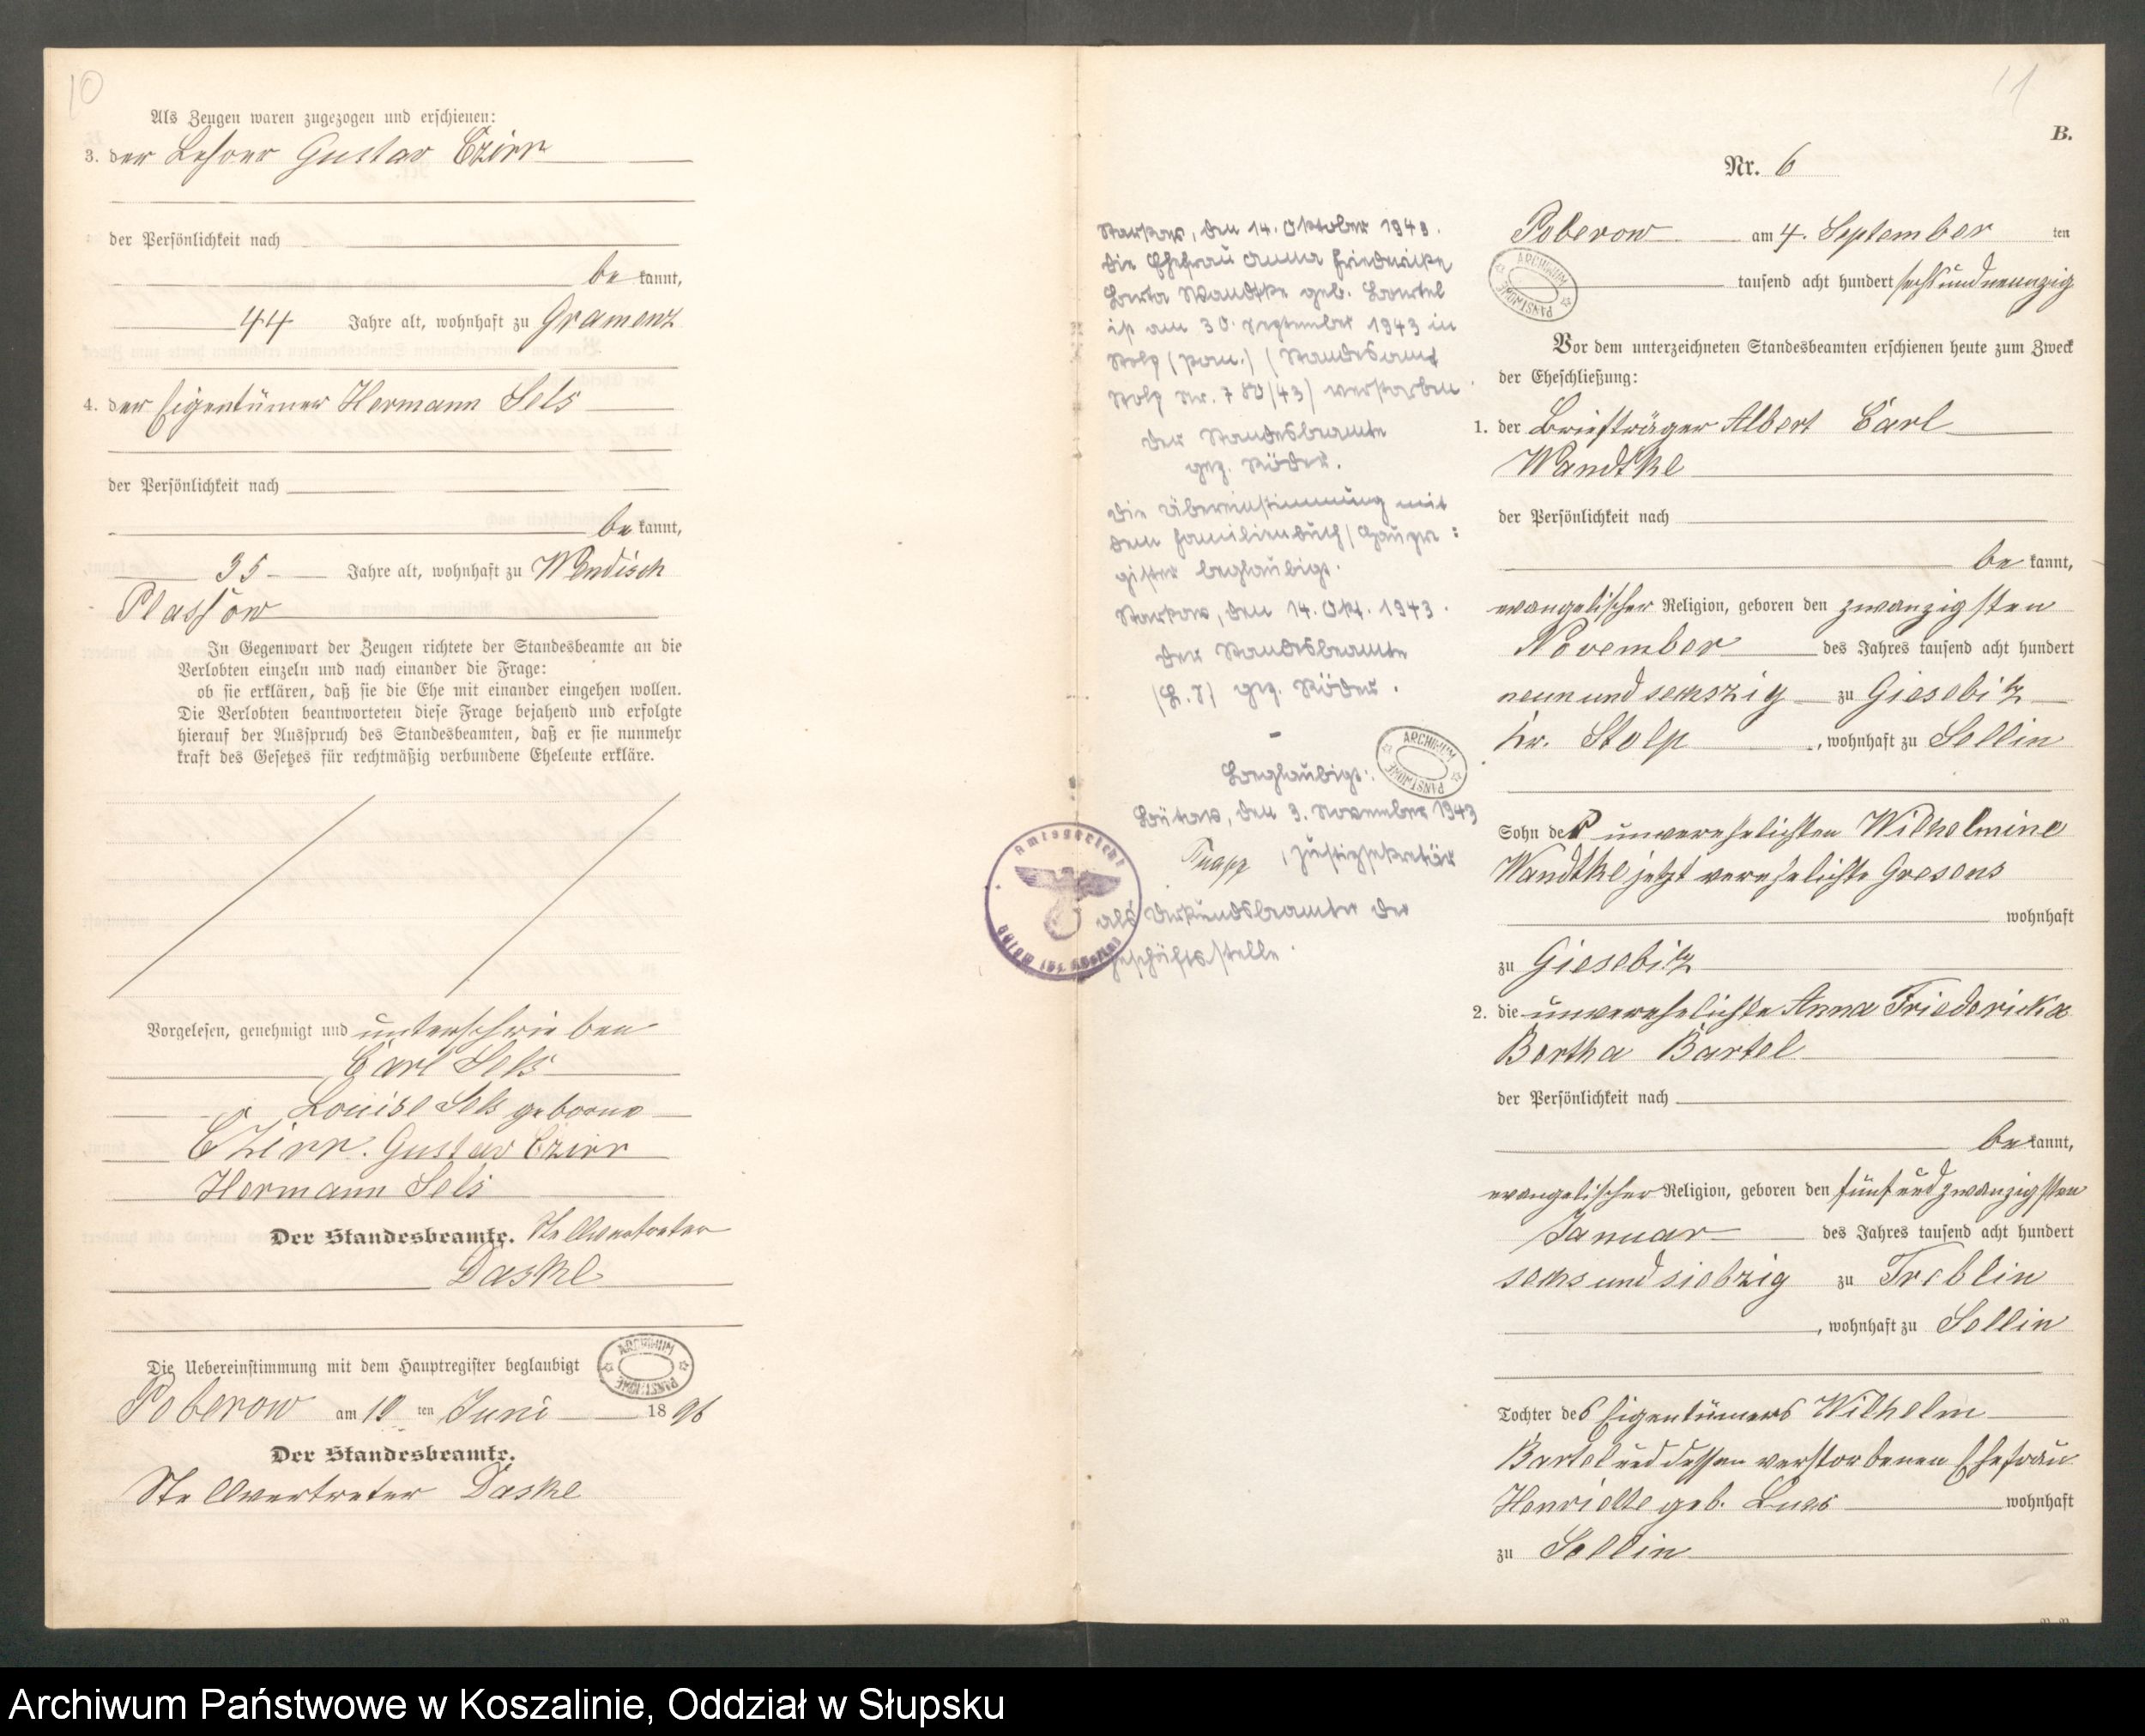 10
Als Zeugen waren zugezogen und erschienen:
3. der Lehrer Gustav Czirr
der Persönlichkeit nach
be kannt,
44 Jahre alt, wohnhaft zu Gramenz
4. der Eigentümer Hermann Sels
der Persönlichkeit nach
be kannt,
35 Jahre alt, wohnhaft zu Wendisch
Plassow
In Gegenwart der Zeugen richtete der Standesbeamte an die
Verlobten einzeln und nach einander die Frage:
ob sie erklären, daß sie die Ehe mit einander eingehen wollen.
Die Verlobten beantworteten diese Frage bejahend und erfolgte
hierauf der Ausspruch des Standesbeamten, daß er sie nunmehr
kraft des Gesetzes für rechtmäßig verbundene Eheleute erkläre.
Vorgelesen, genehmigt und unterschrieben
Carl Sels
Louise Sels geborne
Czirr. Gustav Czirr
Hermann Sels
Der Standesbeamte. Stellvertreter
Daske
Die Uebereinstimmung mit dem Hauptregister beglaubigt
Poberow am 19 ten Juni 18 96
Der Standesbeamte.
Stellvertreter Daske
ARCHIWUM PAŃSTWOWE
Starkow, den 14. Oktober 1943.
Die Ehefrau Anna Friederike
Berta Wandtke geb. Bartel
ist am 30. September 1943 in
Stolp (Pom.) (Standesamt
Stolp Nr. 780/43) verstorben.
Der Standesbeamte
gez. Röder.
Die Übereinstimmung mit
dem Familienbuch/Haupre:
gister beglaubigt.
Starkow, den 14. Okt. 1943.
Der Standesbeamte
(L.S) gez. Röder.
Beglaubigt:
Bütow, den 3. November 1943
, Justizsekretär
als Urkundsbeamter der
Geschäftsstelle.
Amtsgericht
ARCHIWUM PAŃSTWOWE
11
B.
Nr. 6
Poberow am 4. September ten
tausend acht hundert sechs und neunzig
ARCHIWUM PAŃSTWOWE
Vor dem unterzeichneten Standesbeamten erschienen heute zum Zweck
der Eheschließung:
1. der Briefträger Albert Carl
Wandtke
der Persönlichkeit nach
be kannt,
evangelischer Religion, geboren den zwanzigsten
November des Jahres tausend acht hundert
neun und sechszig zu Giesebitz
Kr. Stolp, wohnhaft zu Sellin
Sohn der unverehelichten Wilhelmine
Wandtke jetzt verehelichte Gresens
wohnhaft
zu Giesebitz
2. die unverehelichte Anna Friedericke
Bertha Bartel
der Persönlichkeit nach
be kannt,
evangelischer Religion, geboren den fünf und zwanzigsten
Januar des Jahres tausend acht hundert
sechs und siebzig zu Treblin
, wohnhaft zu Sellin
Tochter des Eigentümers Wilhelm
Bartel und dessen verstorbenen Ehefrau
Henriette geb. wohnhaft
zu Sellin
Archiwum Państwowe w Koszalinie, Oddział w Słupsku